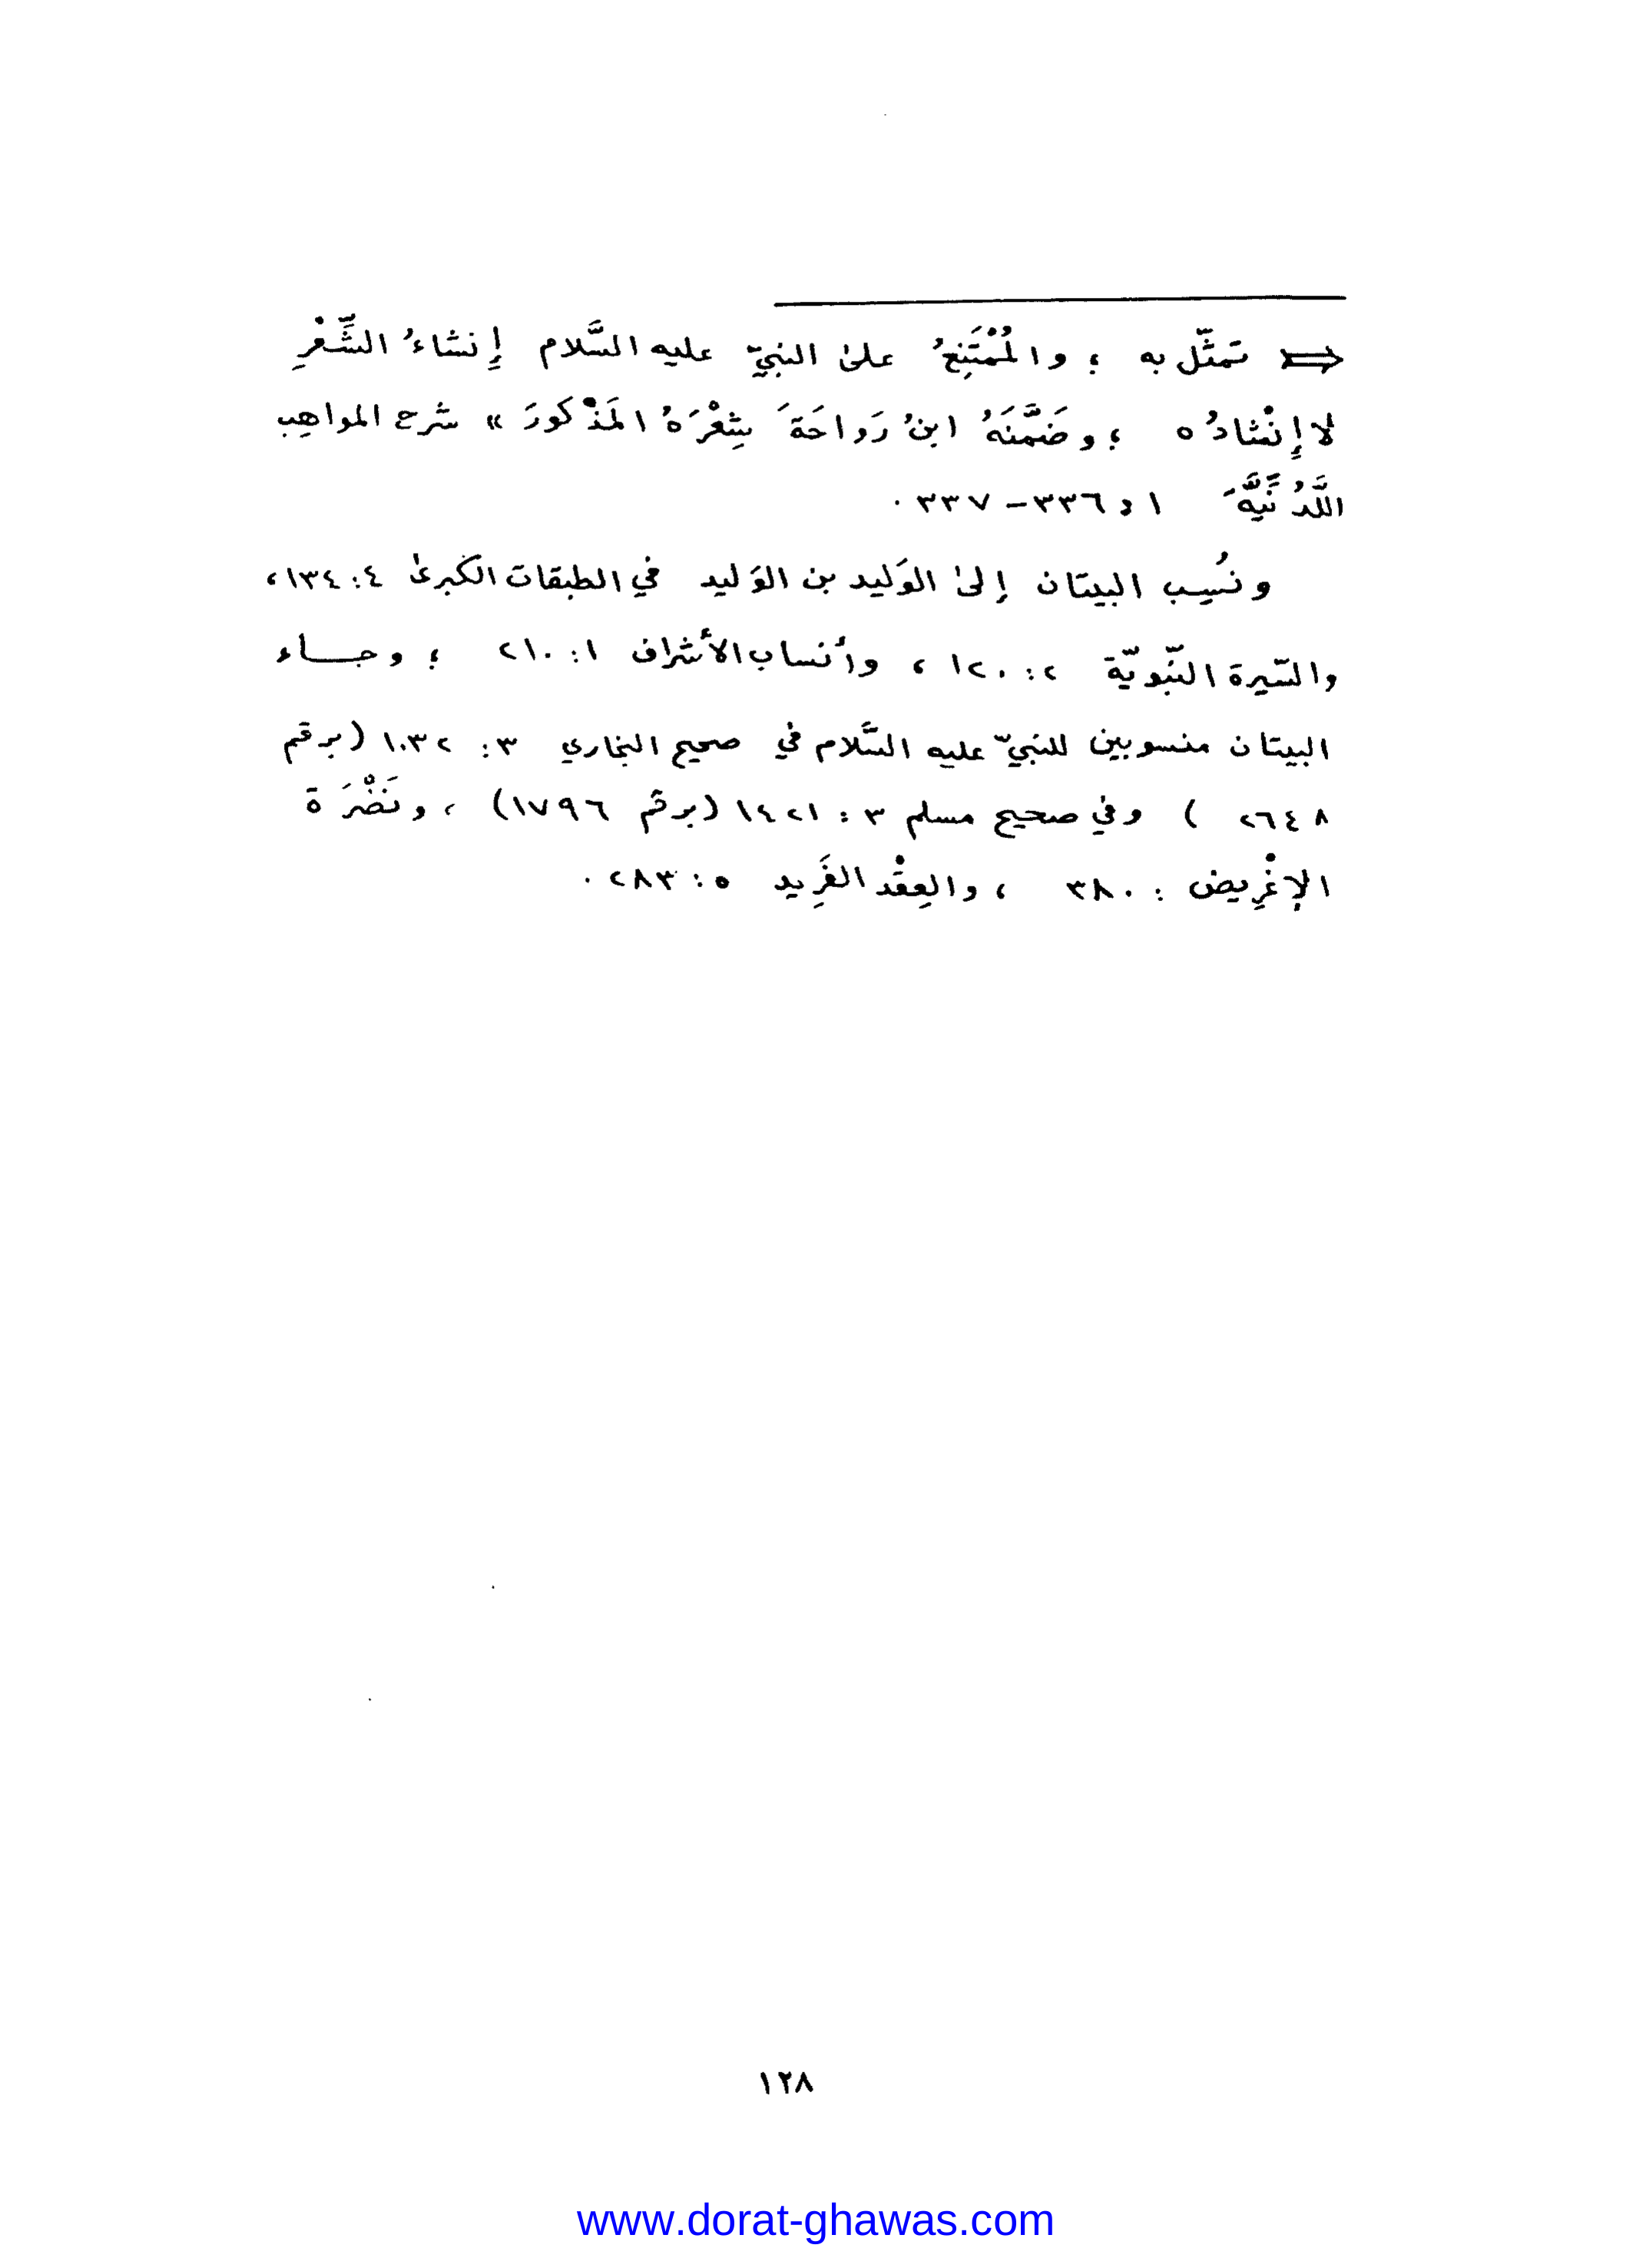 ⇐ تمثّل به ؛ والمُمْتَنِعُ على النبيّ عليه السَّلام إِنشاءُ الشِّعْرِ
لا إِنْشادُه ؛ وضَمَّنَهُ ابنُ رَواحَةَ شِعْرَهُ المَذْكورَ » شرح المواهِب
اللَّدُنِّيَّة ١ : ٣٣٦ – ٣٣٧ .
ونُسِب البيتان إلى الوَليد بن الوَليد في الطبقات الكبرىٰ ٤ : ١٣٤ ،
والسّيرة النّبويّة ٢ : ١٢٠ ، وأنساب الأشراف ١ : ٢١٠ ؛ وجـاء
البيتان منسوبين للنبيّ عليه السَّلام في صحيح البخاري ٣ : ١٠٣٢ (برقم
٢٦٤٨ ) وفي صحيح مسلم ٣ : ١٤٢١ (برقم ١٧٩٦) ، ونَضْرَة
الإغْرِيض : ٣٨٠ ، والعِقْد الفَرِيد ٥ : ٢٨٣ .
١٢٨
www.dorat-ghawas.com